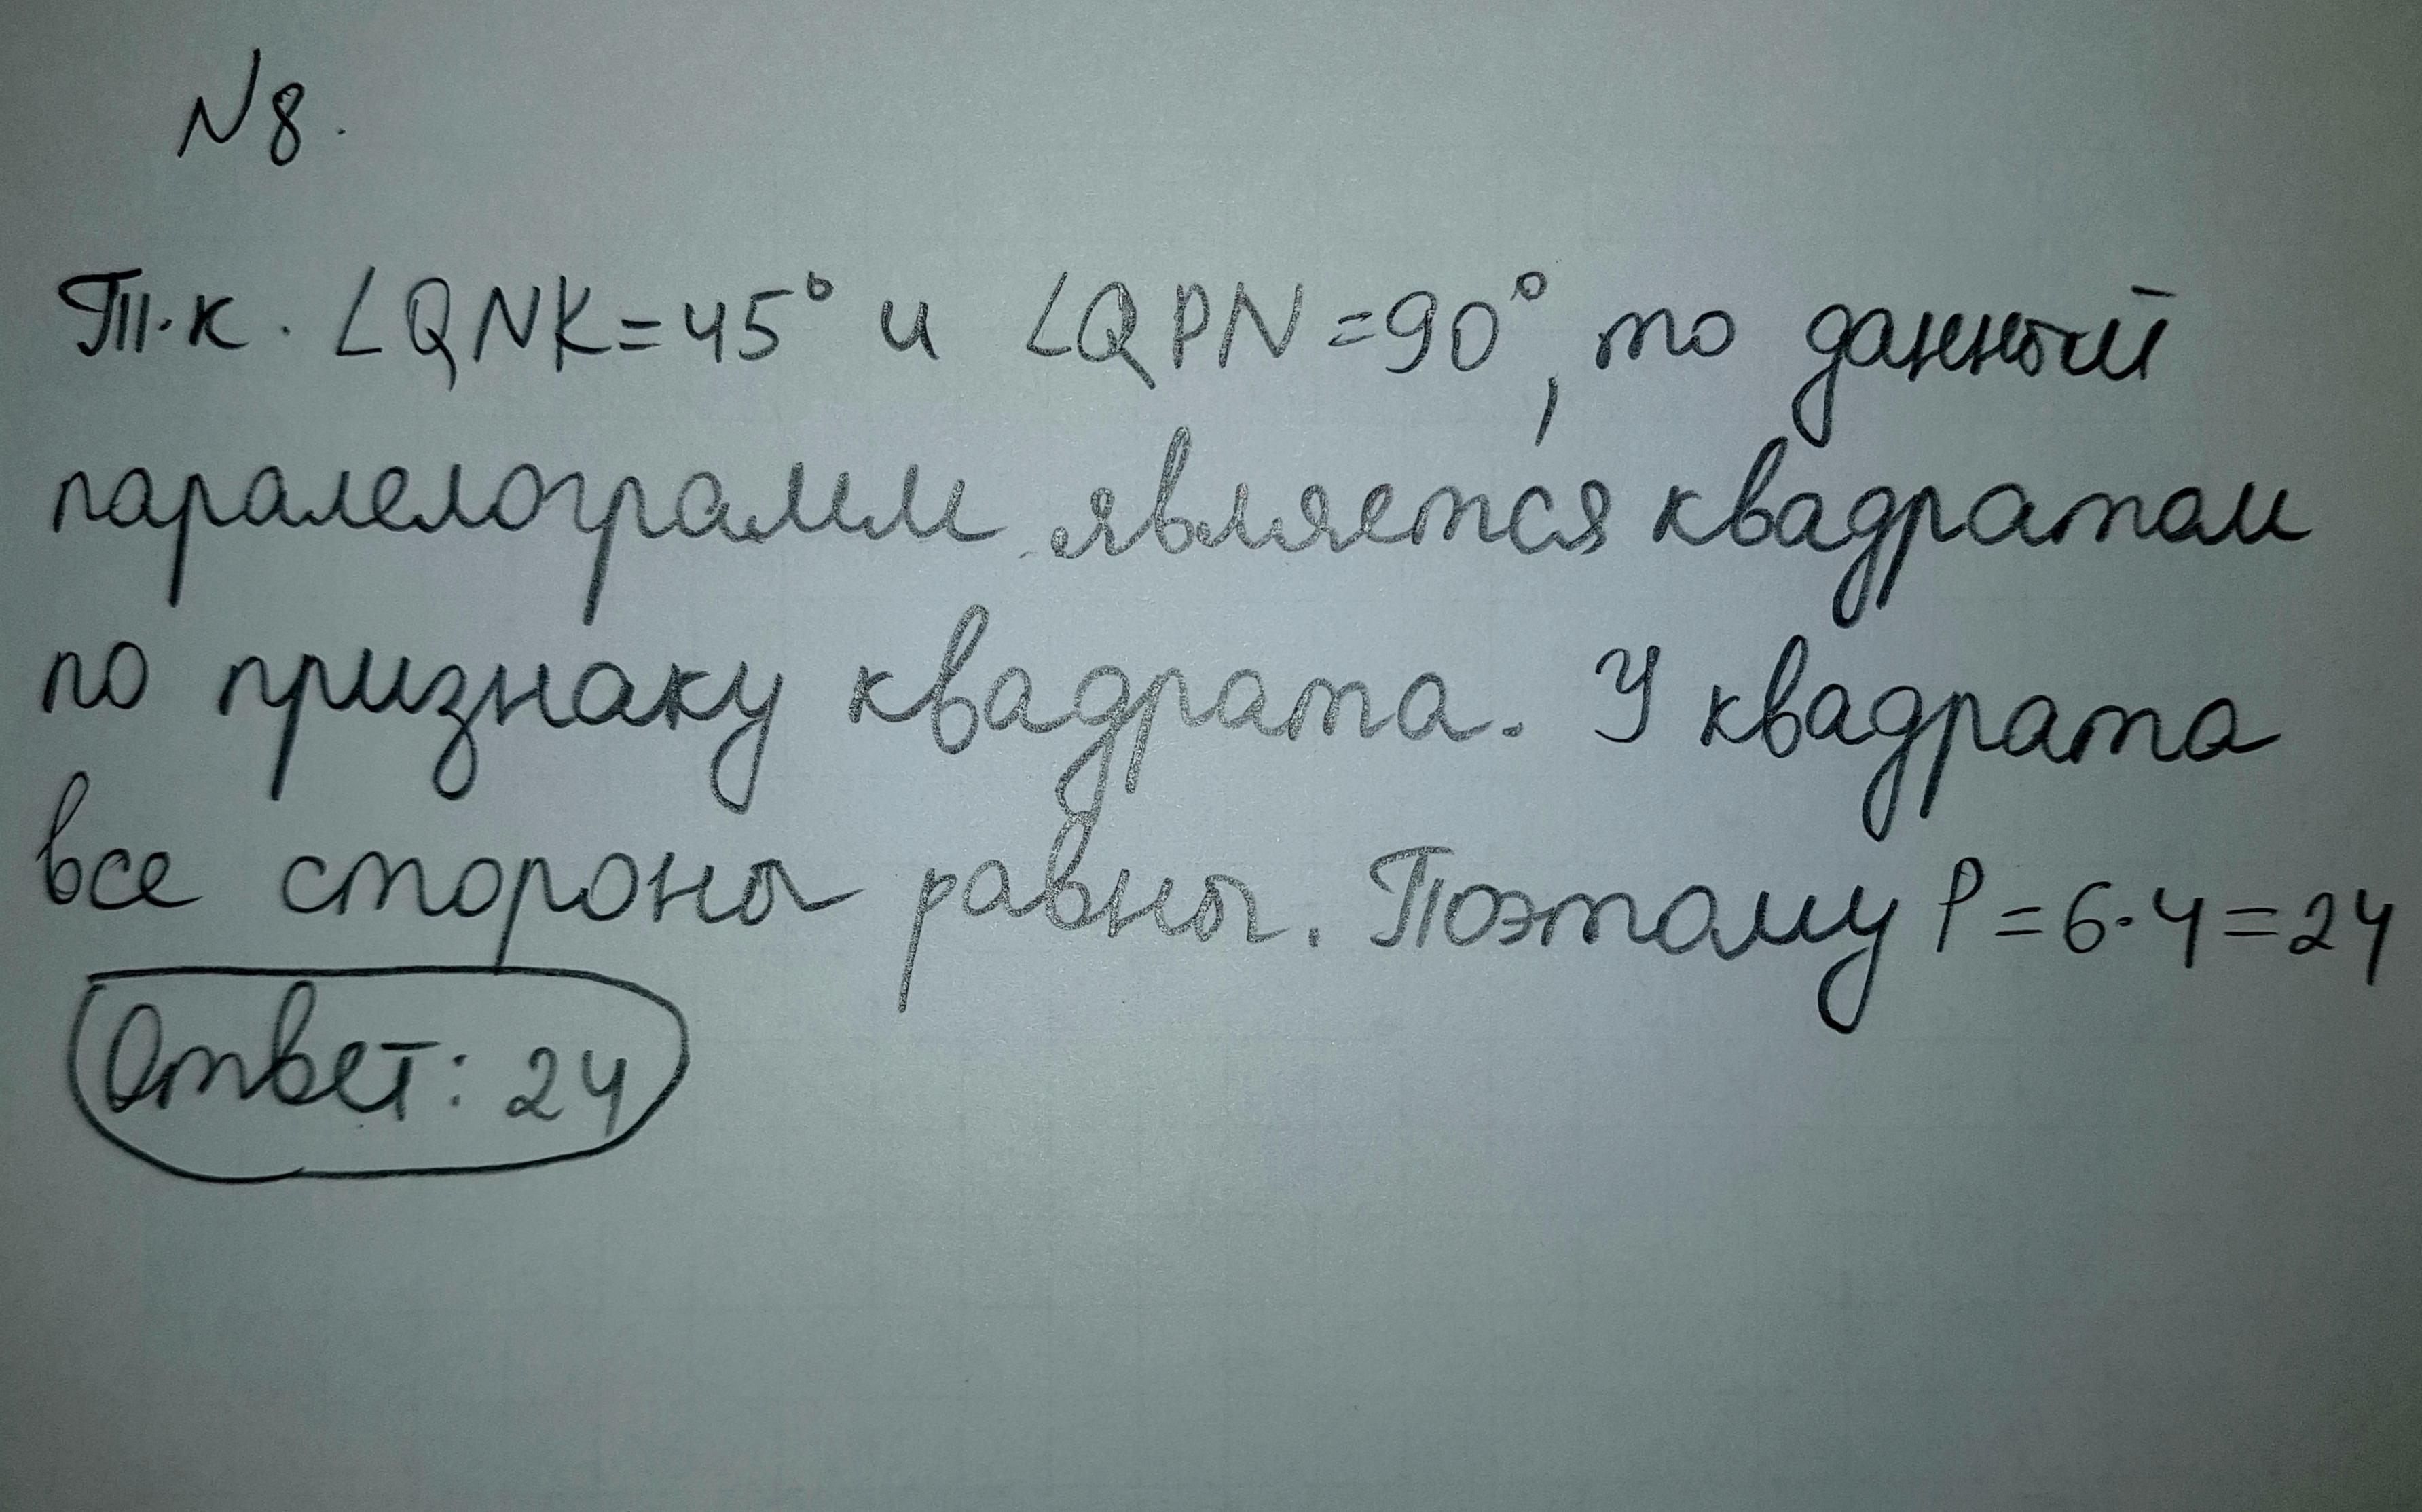 N8.
Т.к. ∠QNK=45° и ∠QPN=90°, то данный
паралелограмм является квадратом
по признаку квадрата. У квадрата
все стороны равны. Поэтому P=6·4=24
Ответ: 24